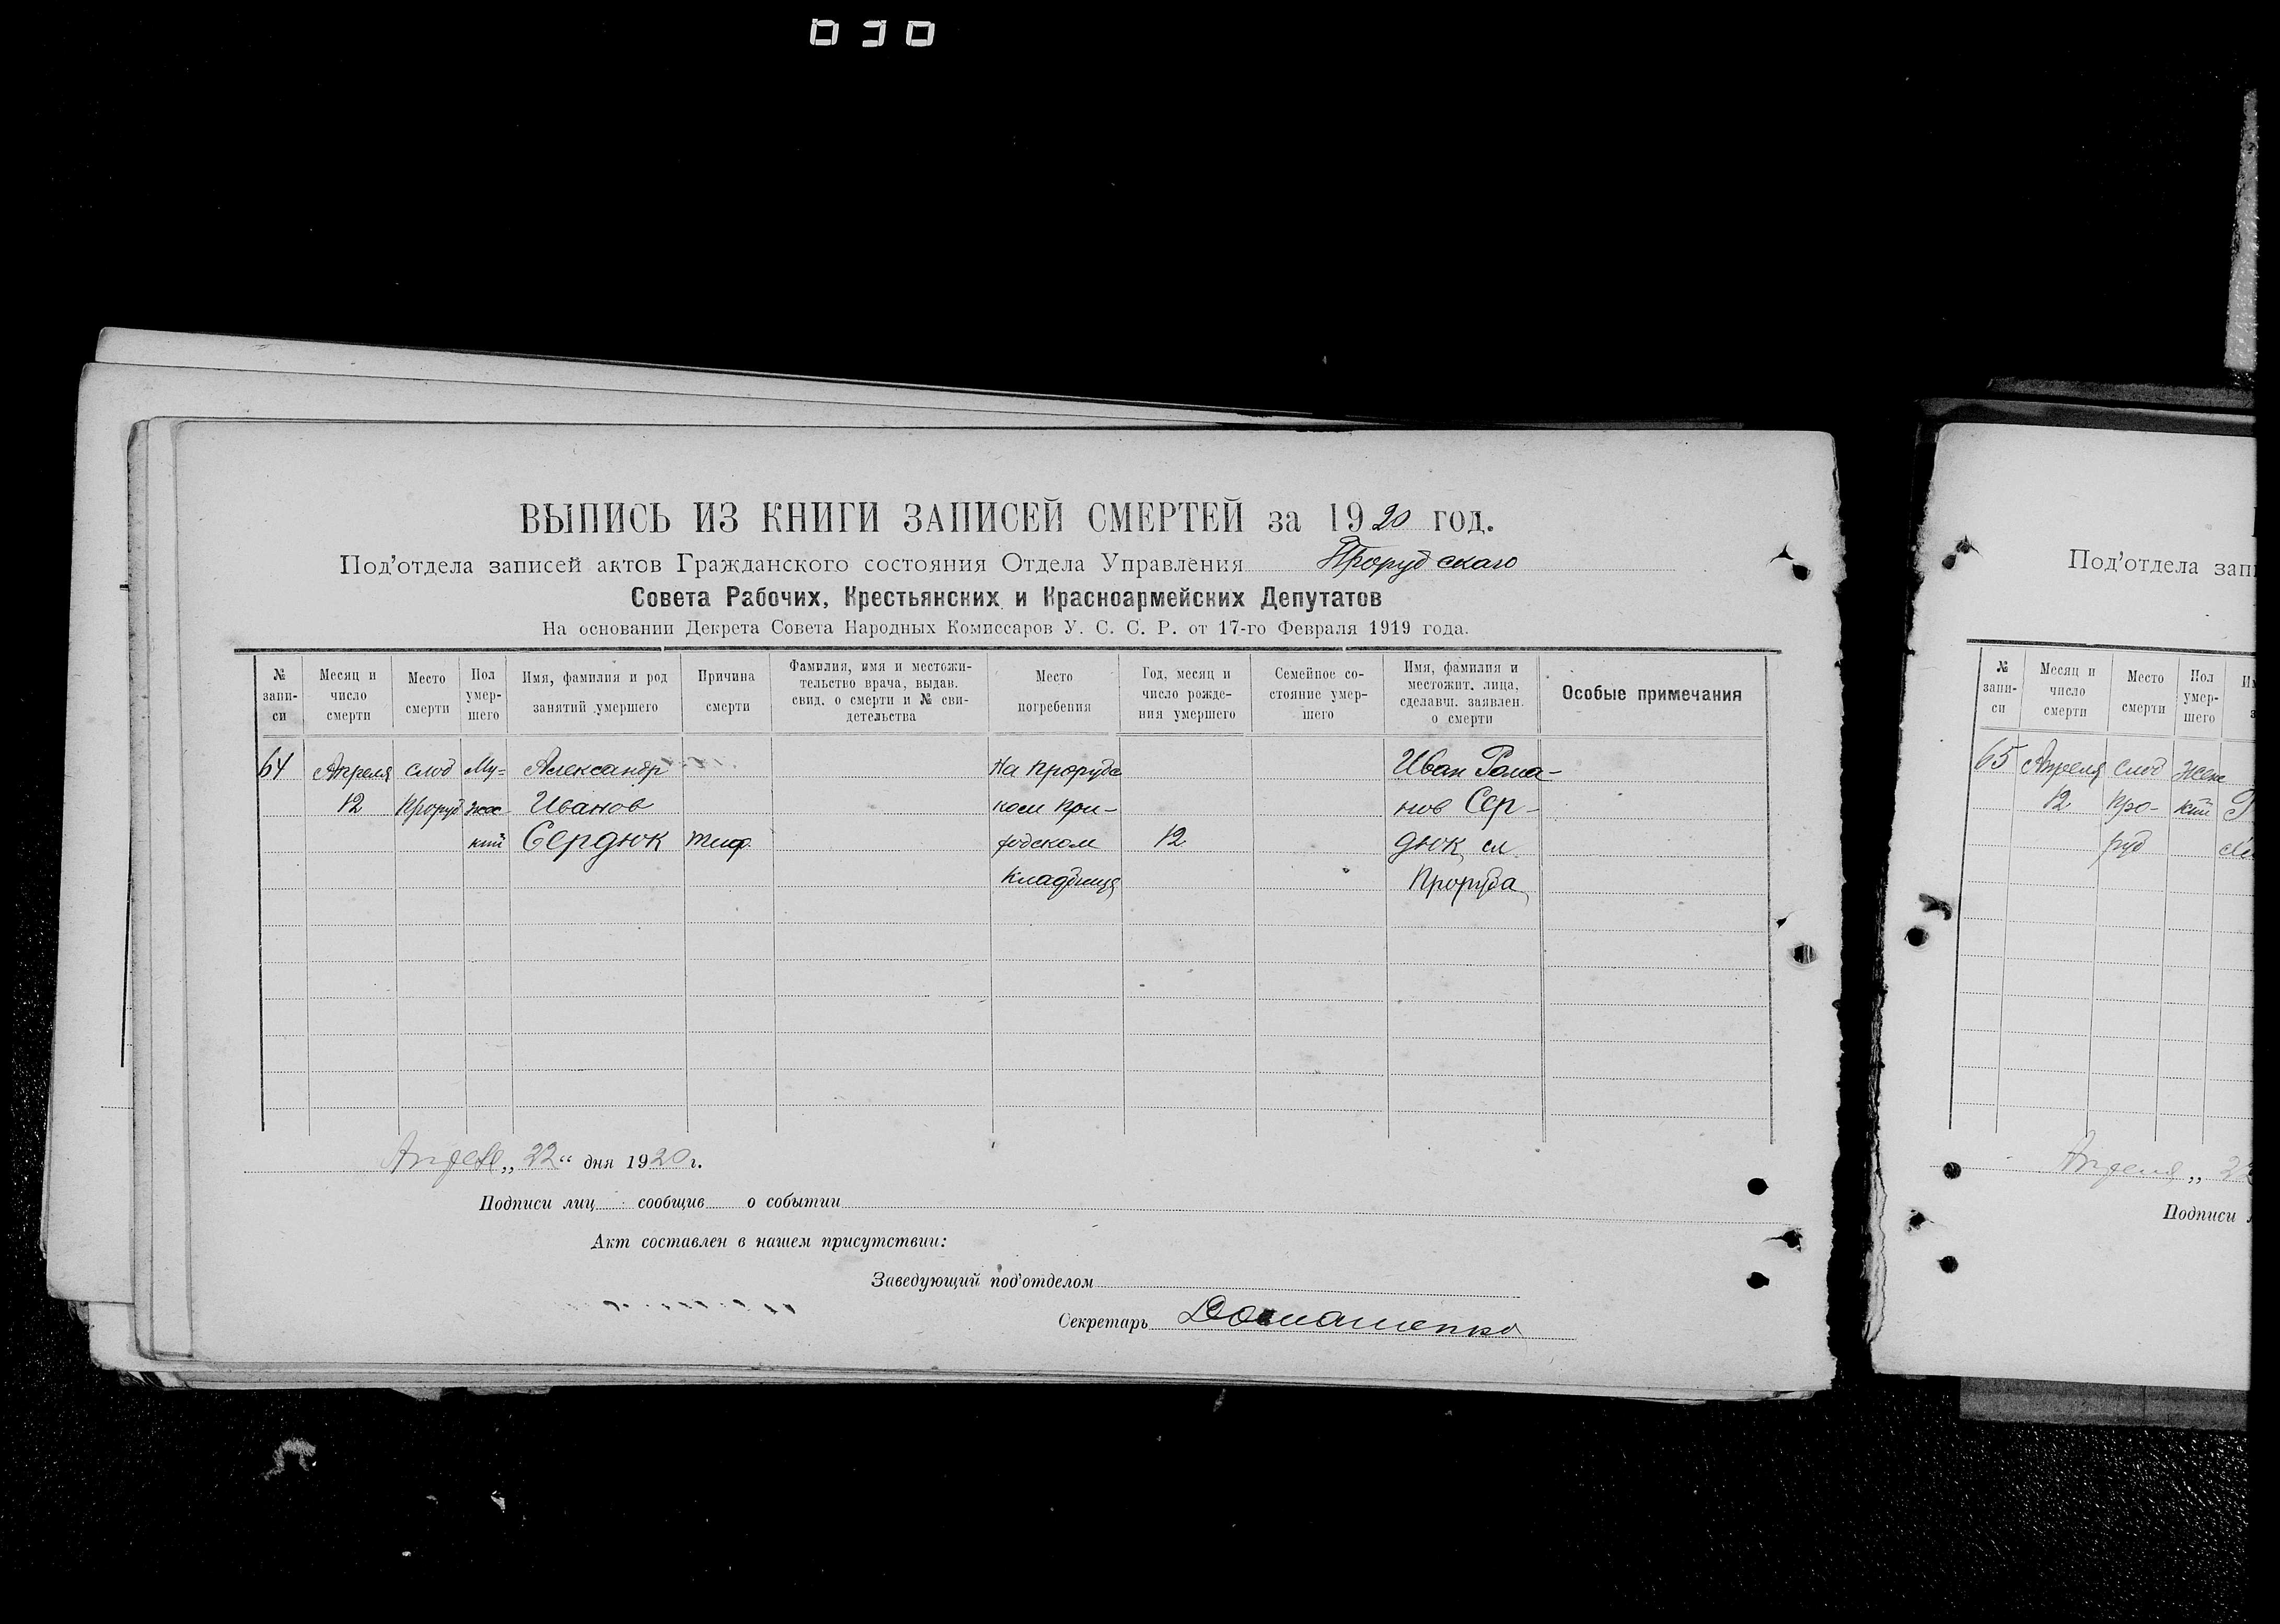 ВЫПИСЬ ИЗ КНИГИ ЗАПИСЕЙ СМЕРТЕЙ за 1920 год.
Под'отдела записей актов Гражданского состояния Отдела Управления Прорудскаго
Совета Рабочих, Крестьянских и Красноармейских Депутатов
На основании Декрета Совета Народных Комиссаров У. С. С. Р. от 17-го Февраля 1919 года.
№ запи-си
Месяц и число смерти
Место смерти
Пол умер-шего
Имя, фамилия и род занятий умершего
Причина смерти
Фамилия, имя и местожи-тельство врача, выдав. свид. о смерти и № сви-детельства
Место погребения
Год, месяц и число рожде-ния умершего
Семейное со-стояние умер-шего
Имя, фамилия и местожит. лица, сделавш. заявлен. о смерти
Особые примечания
64 Апреля слод Му= Александр На Прорудс Иван Рома-
12 Проруб жс Иванов ком нов Сер-
кий Сердюк тиф 12 дюк сл.
Кладбище Проруба
Апреля „22“ дня 1920 г.
Подписи лиц сообщив о событии
Акт составлен в нашем присутствии:
Заведующий под'отделом
Секретарь Домашенко
Под'отдела зап
№ запи-си
Месяц и число смерти
Место смерти
Пол умер-шего
65 Апреля слод Женс
12 Про- кий
руб
Апреля „ 22
Подписи